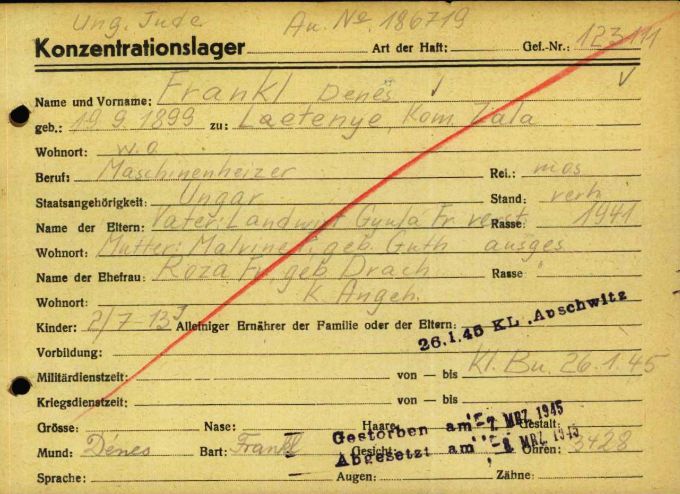 Ung. Jude Au. No. 186719
Konzentrationslager Art der Haft: Gef.-Nr.: 123111
Name und Vorname: Frankl Denés
geb.: 19.9.1899 zu: Laetenye, Kom. Zala
Wohnort: w.o
Beruf: Maschinenheizer Rel.: mos
Staatsangehörigkeit: Ungar Stand: verh
Name der Eltern: Vater: Landwirt Gyula Fr. verst. Rasse: 1941
Wohnort: Mutter: Malvine F. geb. Guth ausges.
Name der Ehefrau: Roza Fr. geb. Drach Rasse
Wohnort: K. Angeh.
Kinder: 2/7-13J Alleiniger Ernährer der Familie oder der Eltern: 26.1.45 KL. Auschwitz
Vorbildung:
Militärdienstzeit: von — bis Kl. Bu. 26.1.45
Kriegsdienstzeit: von — bis
Grösse: Nase: Haare Gestorben am 7. MRZ. 1945 Gestalt:
Mund: Dénes Bart: Frankl Gesicht: Abgesetzt am MRZ. 1945 Ohren: 3428
Sprache: Augen: Zähne: